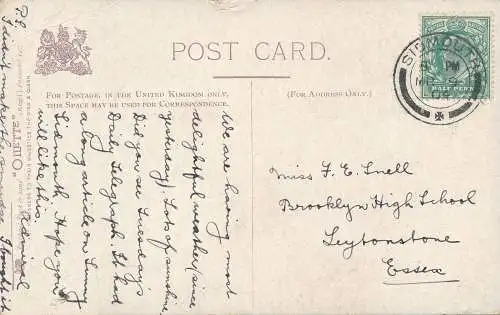 POST CARD.
FOR POSTAGE, IN THE UNITED KINGDOM ONLY,
THIS SPACE MAY BE USED FOR CORRESPONDENCE.
(FOR ADDRESS ONLY.)
SIDMOUTH
HALF PENNY
We are having most
delightful weather (since
yesterday) Lots of sunshine
Did you see Tuesday's
Daily Telegraph. It had
a long article on Sunny
Sidmouth. Hope you
will like this.
P.S.
I didn't make the smudge I bought it
"OILETTE"
Miss F. E. Snell
Brooklyn High School
Leytonstone
Essex